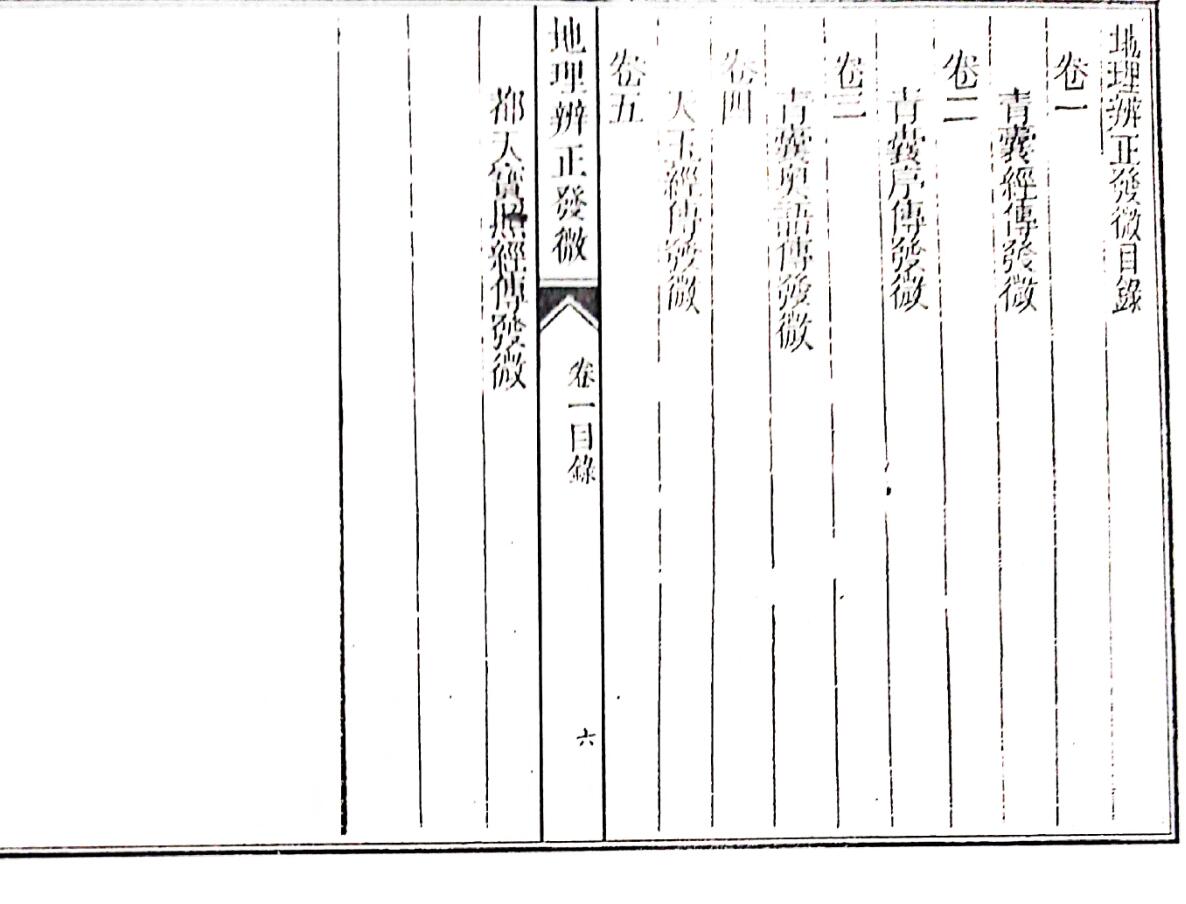 地理辨正發微目錄
卷一
青囊經傳發微
卷二
青囊序傳發微
卷三
青囊奧語傳發微
卷四
天玉經傳發微
卷五
地理辨正發微
卷一目錄
六
都天寶照經傳發微